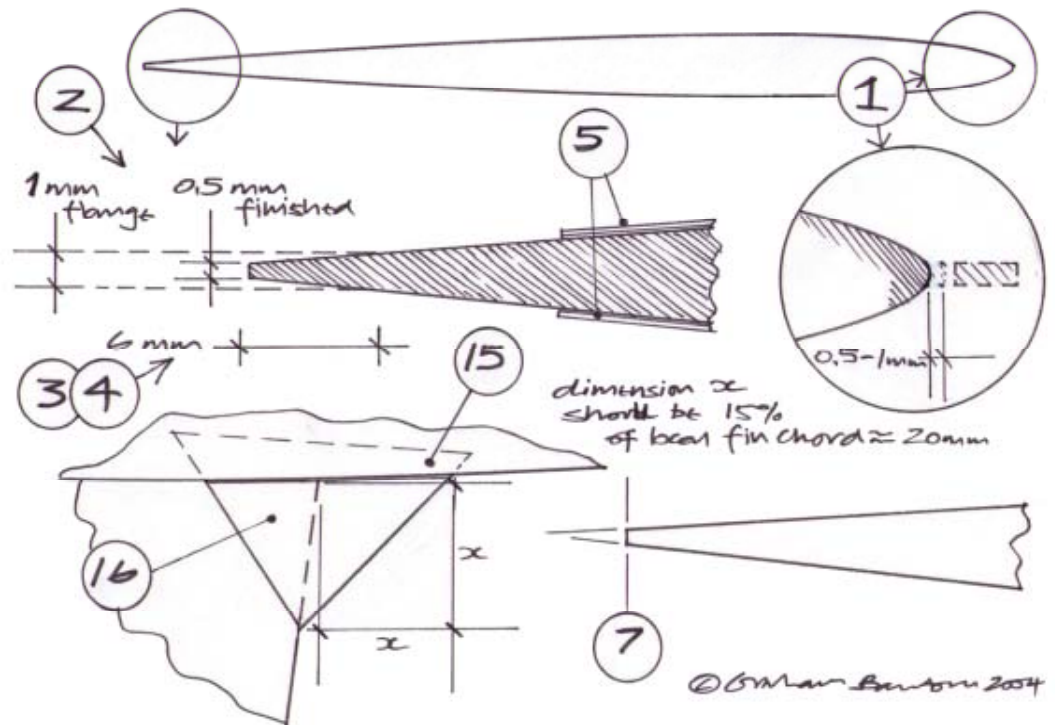 2
1
5
1mm
flange
0.5 mm
finished
6 mm
3 4
15
0.5-1mm
dimension x
should be 15%
of fin chord ≈ 20mm
16
x
x
7
© Graham 2004